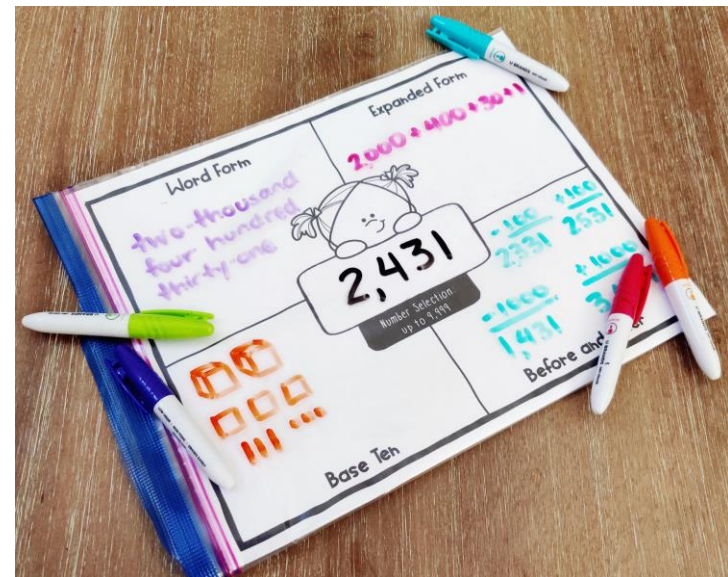 Word Form
two-thousand
four hundred
thirty-one
Expanded Form
2,000 + 400 + 30 + 1
2,431
Number Selection
up to 9,999
- 100
2,331
+ 100
2531
- 1000
1,431
+ 1000
Before and
Base Ten